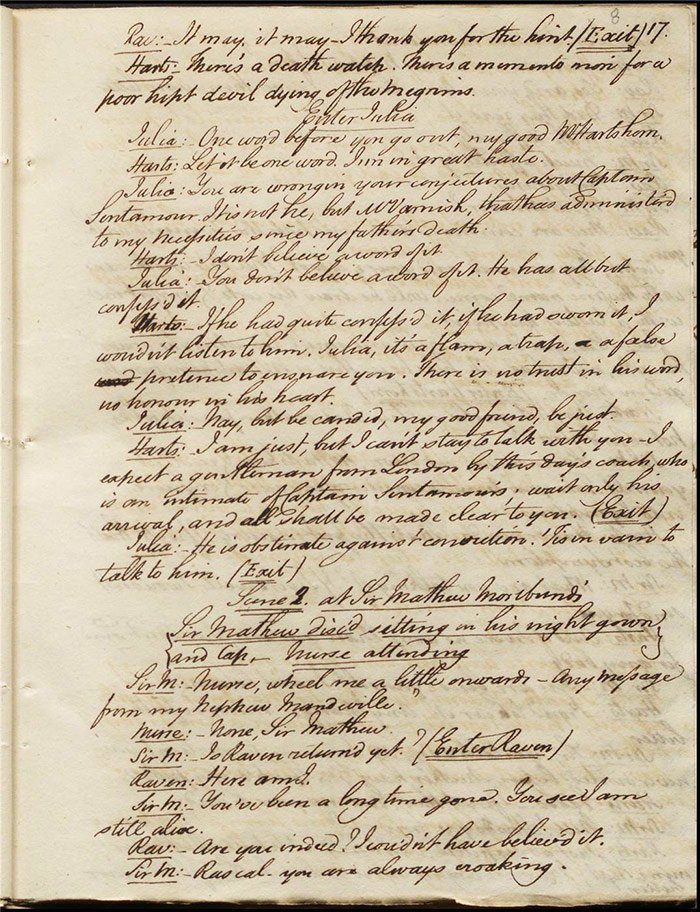 8
Rav:- It may, it may - I thank you for the hint (Exit) 17.
Harts: There's a death watch. There's a memento mori for a
poor hipt devil dying of the megrims.
Enter Julia
Julia:- One word before you go out, my good Mr Hartshorn.
Harts: Let it be one word. I'm in great haste.
Julia: You are wrong in your conjectures about Captain
Sentamour. It is not he, but Mr Varnish, that has administer'd
to my necessities since my father's death.
Harts:- I don't believe a word of it
Julia:- You don't believe a word of it. He has all but
confess'd it.
Harts:- If he had quite confess'd it, if he had sworn it, I
wou'dn't listen to him. Julia, it's a flam, a trap, a false
pretence to ensnare you. There is no trust in his word,
no honour in his heart.
Julia: Nay, but be candid, my good friend, be just.
Harts:- I am just, but I can't stay to talk with you - I
expect a gentleman from London by this day's coach, who
is an intimate of Captain Sentamour's, wait only his
arrival, and all shall be made clear to you. (Exit)
Julia:- He is obstinate against conviction. 'Tis in vain to
talk to him. (Exit)
Scene 2. at Sir Mathew Moribund's
Sir Mathew disc'd sitting in his night gown
and Cap, - Nurse attending
Sir M:- Nurse, wheel me a little onwards - Any message
from my Nephew Mandeville?
Nurse:- None, Sir Mathew.
Sir M:- Is Raven return'd yet? (Enter Raven)
Raven: Here am I.
Sir M:- You've been a long time gone. You see I am
still alive.
Rav:- Are you indeed? I cou'dn't have believ'd it.
Sir M:- Rascal - you are always croaking.